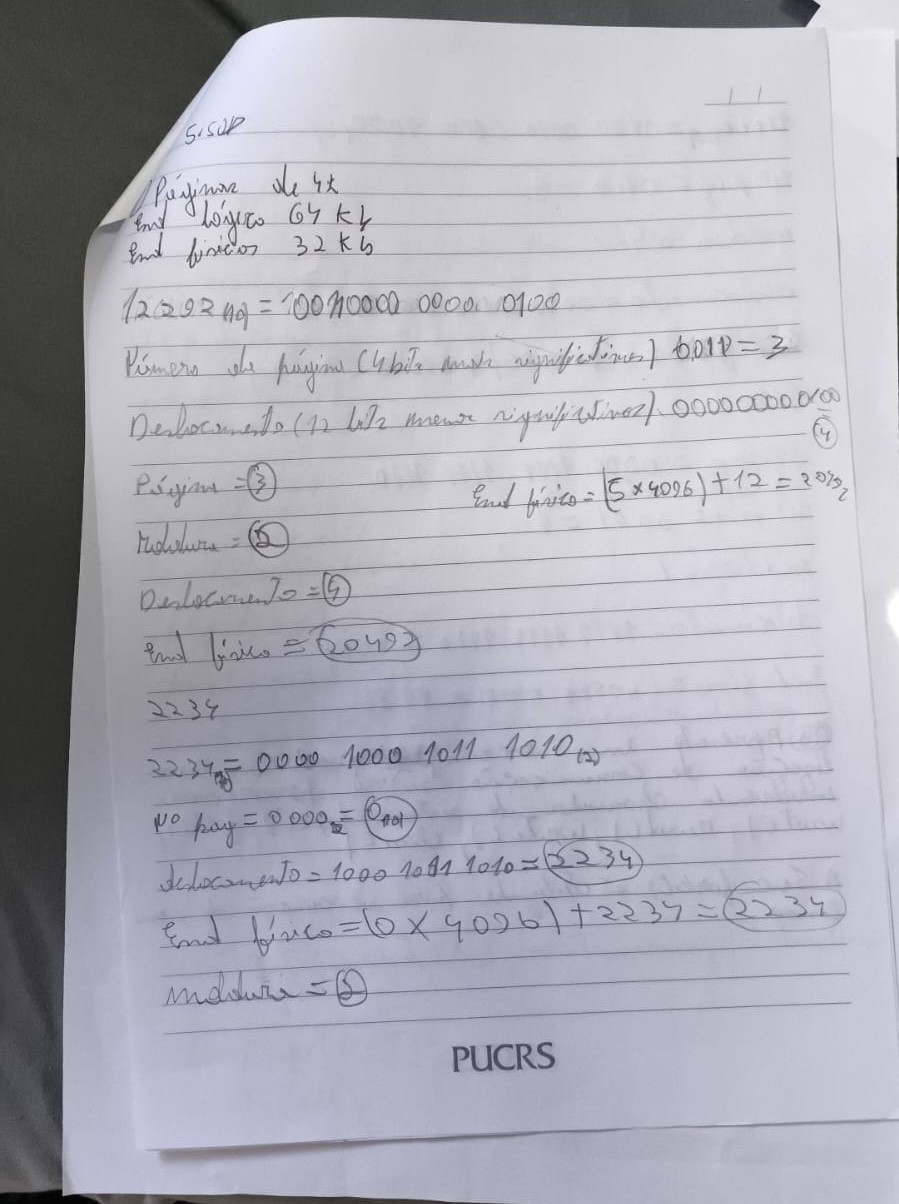 SISOP
Páginas de 4k
End lógico 64 Kb
End fisicos 32 Kb
12292 = 0000 0100
Número de página (4 bits mais significativos) = 3
Deslocamento (12 bits menos significativos) 000000000100
4
Página = 3
End físico = (5 x 4096) + 12 =
Moldura =
Deslocamento = 4
End físico =
2234
2234 = 0000 1000 1011 1010 (2)
Nº pag = 0000 2 = 0
deslocamento = 1000 1011 1010 = 2234
End físico = (0 x 4096) + 2234 = 2234
moldura =
PUCRS